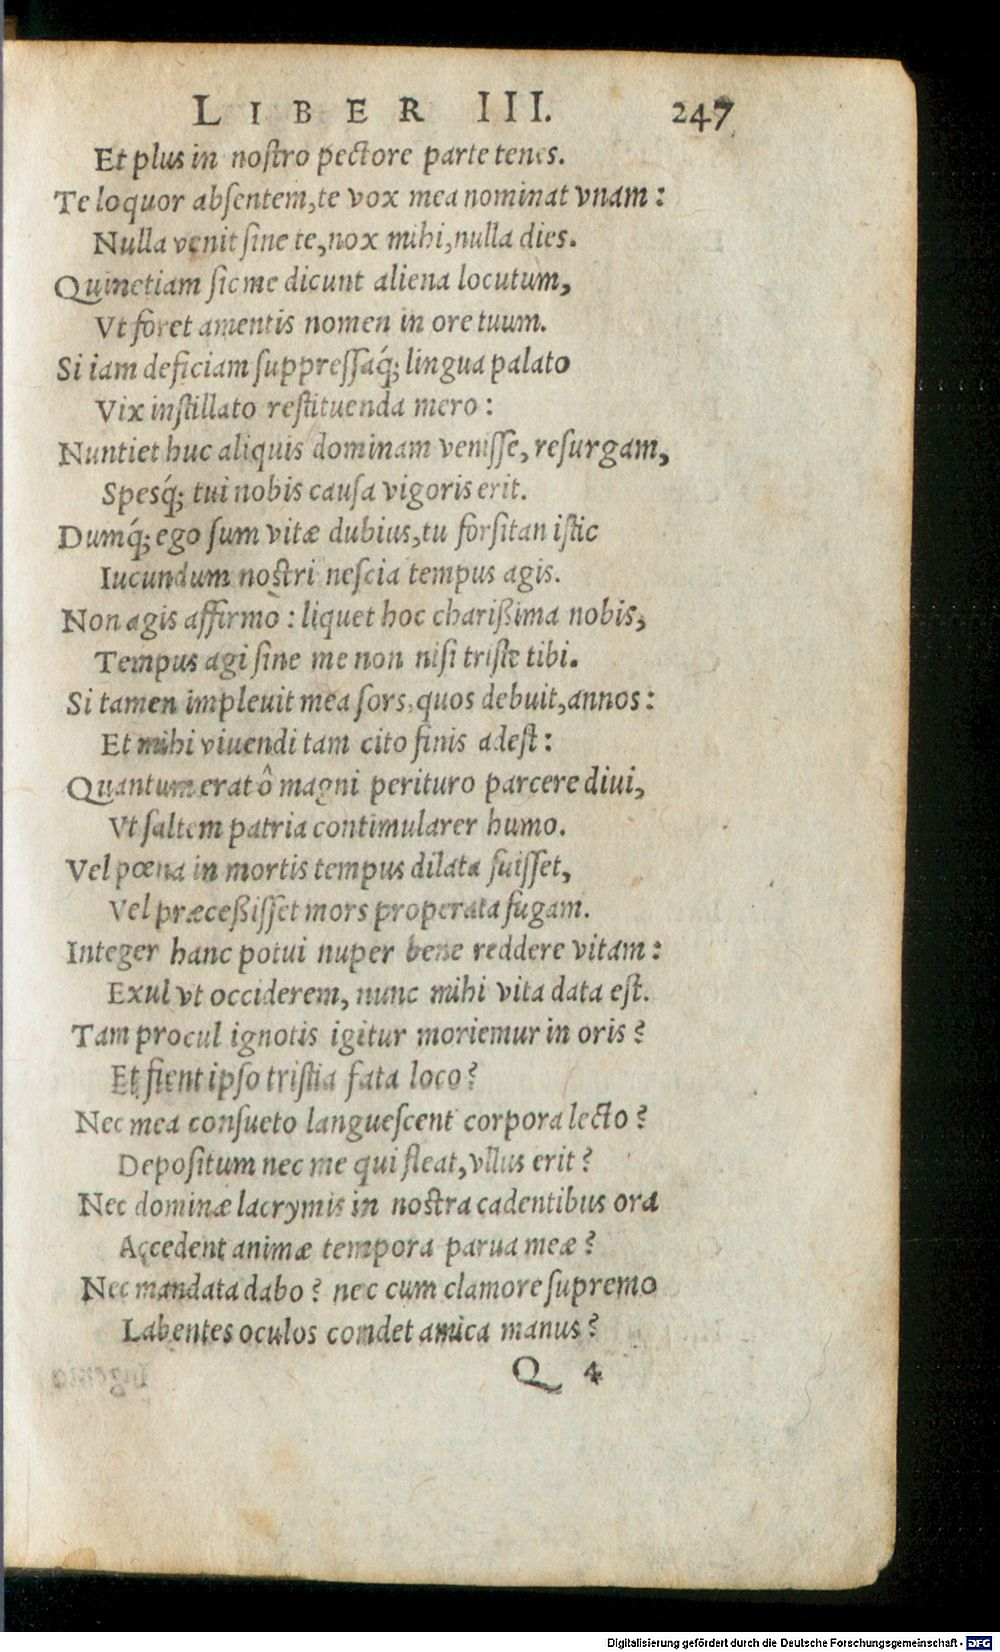 LIBER III. 247
Et plus in noſtro pectore parte tenes.
Te loquor abſentem, te vox mea nominat vnam:
Nulla venit ſine te, nox mihi, nulla dies.
Quinetiam ſic me dicunt aliena locutum,
Vt foret amentis nomen in ore tuum.
Si iam deficiam ſuppreſſaq́; lingua palato
Vix inſtillato reſtituenda mero:
Nuntiet huc aliquis dominam veniſſe, reſurgam,
Spesq́; tui nobis cauſa vigoris erit.
Dumq́; ego ſum vitæ dubius, tu forſitan iſtic
Iucundum noſtri neſcia tempus agis.
Non agis affirmo: liquet hoc charißima nobis,
Tempus agi ſine me non niſi triſte tibi.
Si tamen impleuit mea ſors, quos debuit, annos:
Et mihi viuendi tam cito finis adeſt:
Quantum erat ô magni perituro parcere diui,
Vt ſaltem patria contimularer humo.
Vel pœna in mortis tempus dilata fuiſſet,
Vel præceßiſſet mors properata fugam.
Integer hanc potui nuper bene reddere vitam:
Exul vt occiderem, nunc mihi vita data eſt.
Tam procul ignotis igitur moriemur in oris?
Et fient ipſo triſtia fata loco?
Nec mea conſueto langueſcent corpora lecto?
Depoſitum nec me qui fleat, vllus erit?
Nec dominæ lacrymis in noſtra cadentibus ora
Accedent animæ tempora parua meæ?
Nec mandata dabo? nec cum clamore ſupremo
Labentes oculos condet amica manus?
Q 4
Digitalisierung gefördert durch die Deutsche Forschungsgemeinschaft - DFG